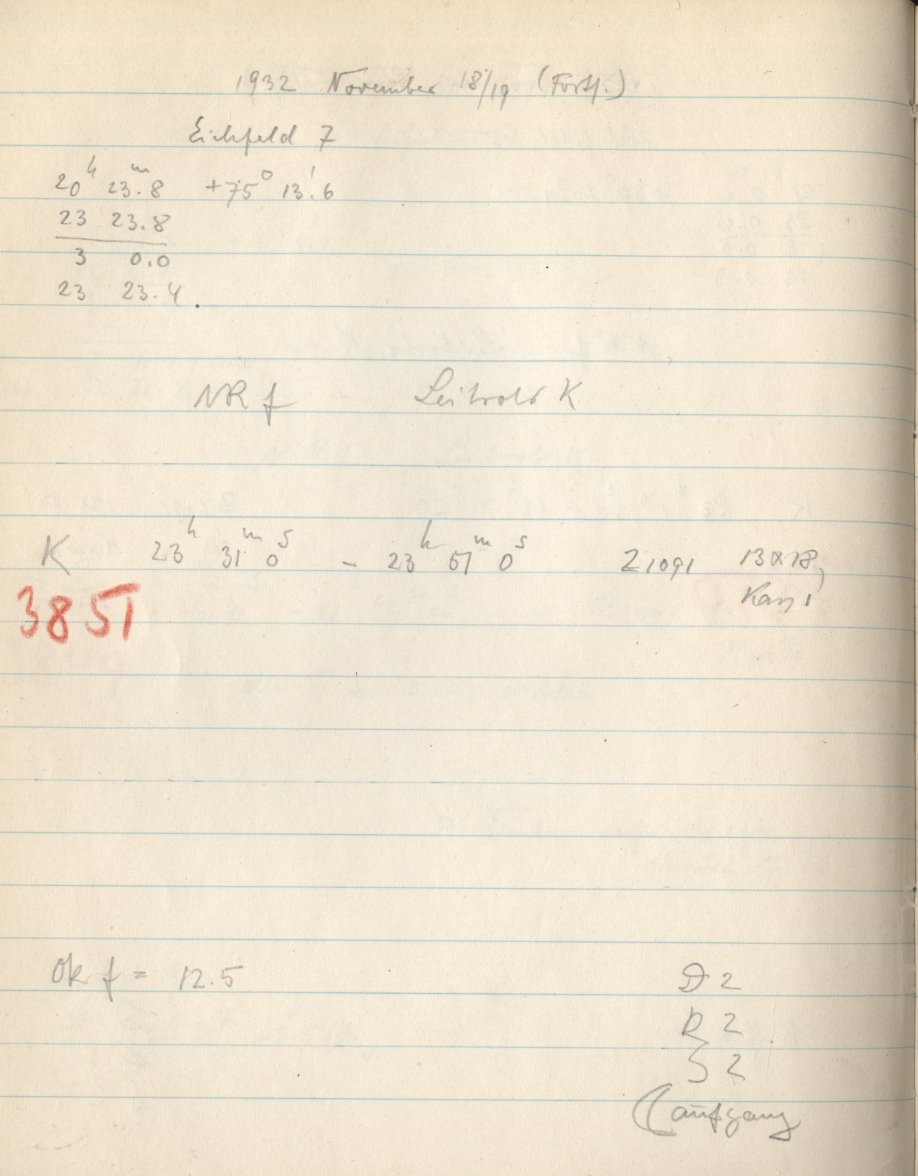 1932 November 18/19 (Forts.)
Eichfeld 7
20ʰ 23ᵐ.8 +75° 13'.6
23 23.8
3 0.0
23 23.4.
NR f Leitrohr K
K 23ʰ 31ᵐ 0ˢ – 23ʰ 51ᵐ 0ˢ Z1091 13x18,
Kass 1
3851
Ok f = 12.5
D 2
R 2
S 2
☾ aufgang